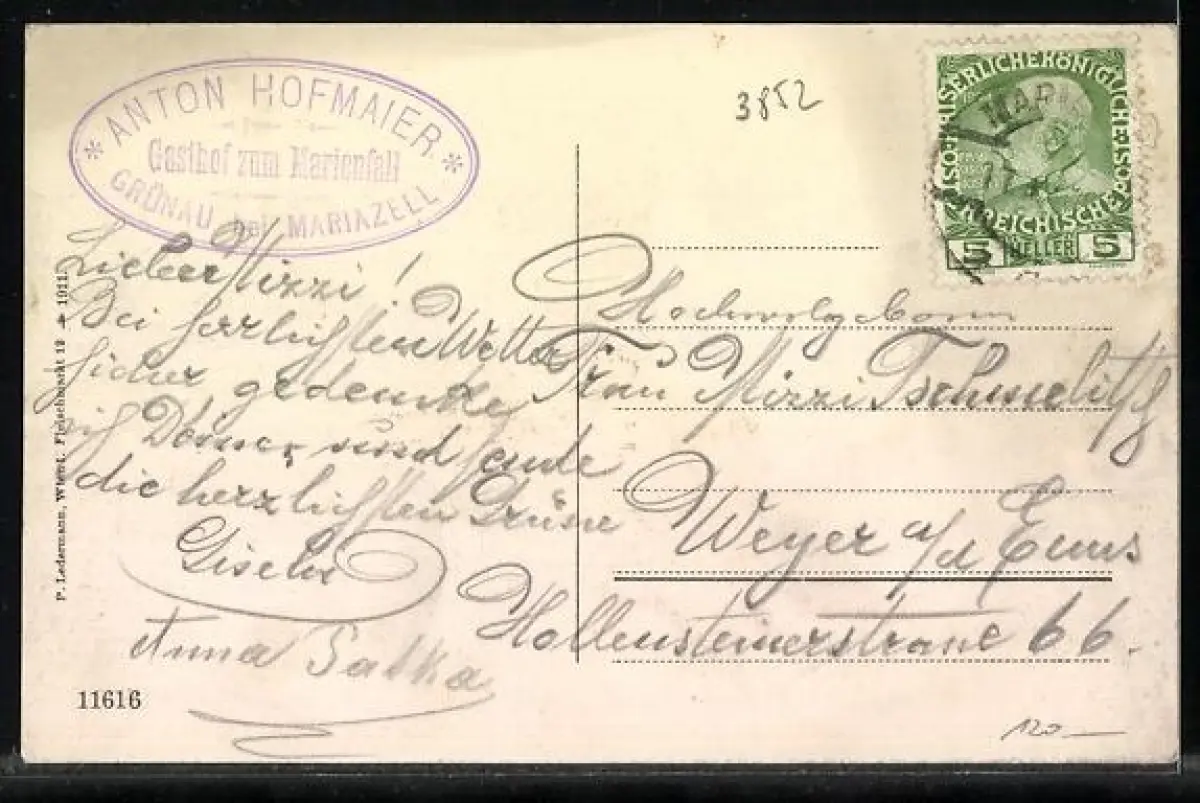 ANTON HOFMAIER.
Gasthof zum Marienfall
GRÜNAU bei MARIAZELL
3852
KAISERLICHEKÖNIGLICHE ÖSTERREICHISCHE POST
MARIA
5 HELLER 5
Liebe Mizzi!
Bei herrlichsten Wetter
hier gedenke
ich Deiner und sende
die herzlichsten Grüsse
Gisela
Anna Satka
Hochwolgeboren
Frau Mizzi Tschmelitsch
Weyer a/d Enns
Hollensteinerstrasse 66.
P. Ledermann, Wien I. Fleischmarkt 12 1911.
11616
120—